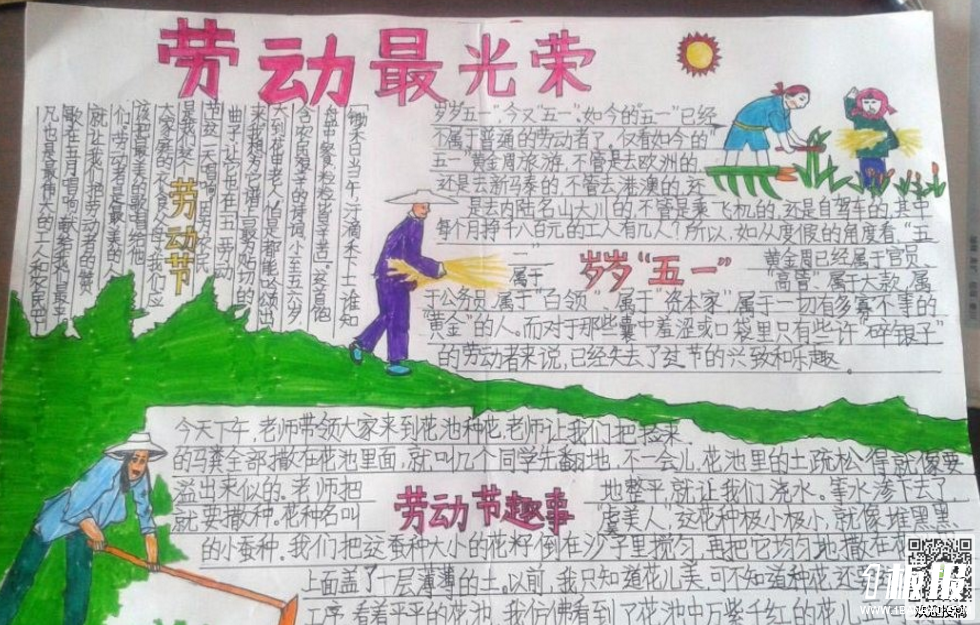 劳动最光荣
锄禾日当午，汗滴禾下土。谁知
盘中餐，粒粒皆辛苦。这首饱
含农民艰辛的诗词，小至五六岁
大到花甲老人，怕是人都能吟颂出
来我想为它谱上最好听的
曲子，让它也在"五一"劳动
节这一天唱响。因为农民
劳动节
该把最美的歌唱给他
们，劳动者是最美的人
就让我们把劳动者的赞
歌在五月唱响，献给我们最平
凡也是最伟大的工人和农民吧
岁岁"五一"，今又"五一"。如今的"五一"已经
不属于普通的劳动者了。仅看如今的"
五一"黄金周旅游，不管是去欧洲的
还是去新马泰的，不管去港澳的，还
是去内陆名山大川的，不管是乘飞机的，还是自驾车的，其中
每个月挣千八百元的工人有几人？所以，如从度假的角度看，"五
一"
岁岁"五一"
黄金周已经属于官员
属于
"高管"、属于大款、属
于公务员，属于"白领"、属于"资本家"，属于一切有多寡不等的
"黄金"的人。而对于那些囊中羞涩或口袋里只有些许"碎银子"
的劳动者来说，已经失去了过节的兴致和乐趣。
今天下午，老师带领大家来到花池种花，老师让我们把捡来
的马粪全部撒在花池里面，就叫几个同学先翻地，不一会儿，花池里的土疏松得就像要
溢出来似的。老师把
地整平，就让我们浇水。等水渗下去了，
就要撒种。花种名叫
劳动节趣事
"虞美人"，这花种极小极小，就像一堆黑黑
的小蚕种。我们把这蚕种大小的花籽倒在沙子里搅匀，再把它均匀地撒在花
上面盖了一层薄薄的土。以前，我只知道花儿美，可不知道种花还
工序，看着平平的花池，我仿佛看到了花池中万紫千红的花儿
板报
欢迎投稿